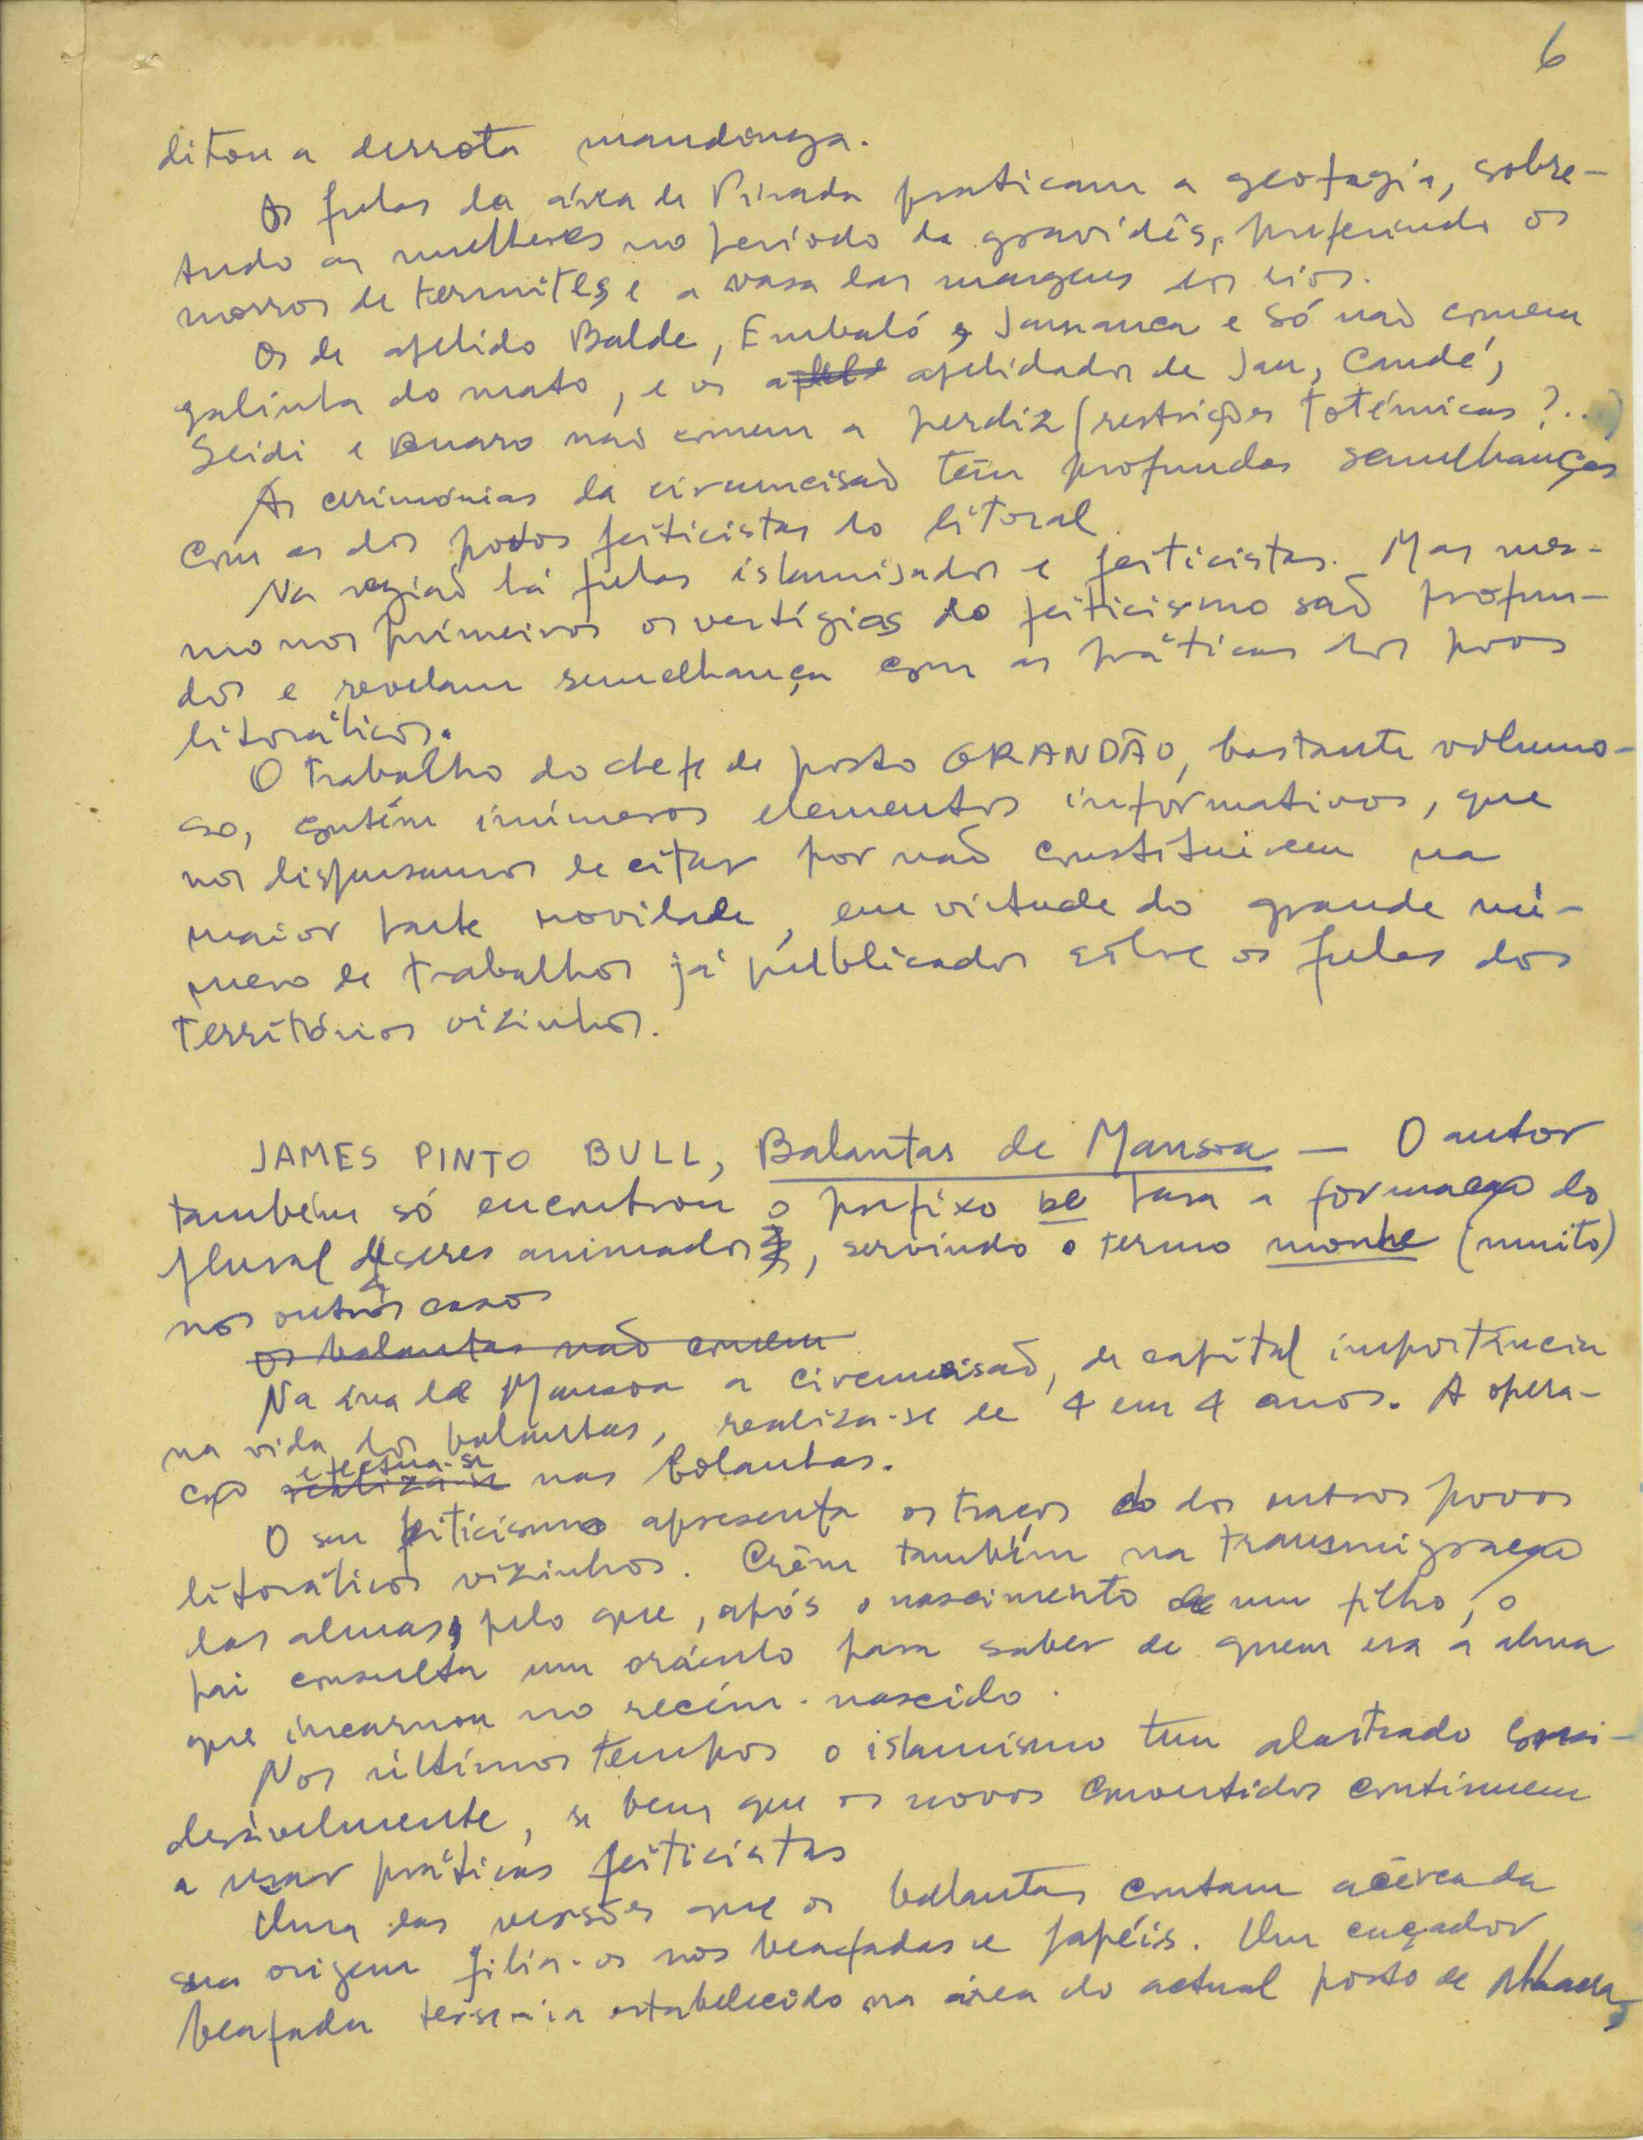 6
ditou a derrota mandinga.
Os fulas da área de Pirada praticam a geofagia, sobre-
tudo as mulheres no período da gravidês, preferindo os
morros de termites e a vasa das margens dos rios.
Os de apelido Balde, Embaló, Jamanca e Só não comem
galinha do mato, e os apelidados de Jau, Candé,
Seidi e Buaro não comem a perdiz (restrições totémicas?..)
As cerimónias da circuncisão têm profundas semelhanças
com as dos povos feiticistas do litoral.
Na região há fulas islamisados e feiticistas. Mas mes-
mo nos primeiros os vestígios do feiticismo são profun-
dos e revelam semelhança com as práticas dos povos
litorálicos.
O trabalho do chefe de posto GRANDÃO, bastante volumo-
so, contém inúmeros elementos informativos, que
nos dispensamos de citar por não constituirem na
maior parte novidade, em virtude do grande nú-
mero de trabalhos já públicados sôbre os fulas dos
territórios vizinhos.
JAMES PINTO BULL, Balantas de Mansoa — O autor
também só encontrou o prefixo be para a formação do
plural de seres animados, servindo o termo monhe (muito)
nos outros casos
os balantas não comem
Na área de Mansoa a circuncisão, de capital importância
na vida dos balantas, realiza-se de 4 em 4 anos. A opera-
ção realiza-se efectua-se nas bolanhas.
O seu feiticismo apresenta os traços do dos outros povos
litorálicos vizinhos. Crêm também na transmigração
das almas, pelo que, após o nascimento de um filho, o
pai consulta um oráculo para saber de quem era a alma
que incarnou no recém-nascido.
Nos últimos tempos o islamismo tem alastrado consi-
deràvelmente, se bem que os novos convertidos continuem
a usar práticas feiticistas
Uma das versões que os balantas contam acêrca da
sua origem filia-os nos beafadas e papéis. Um caçador
beafada ter-se-ia estabelecido na área do actual posto de